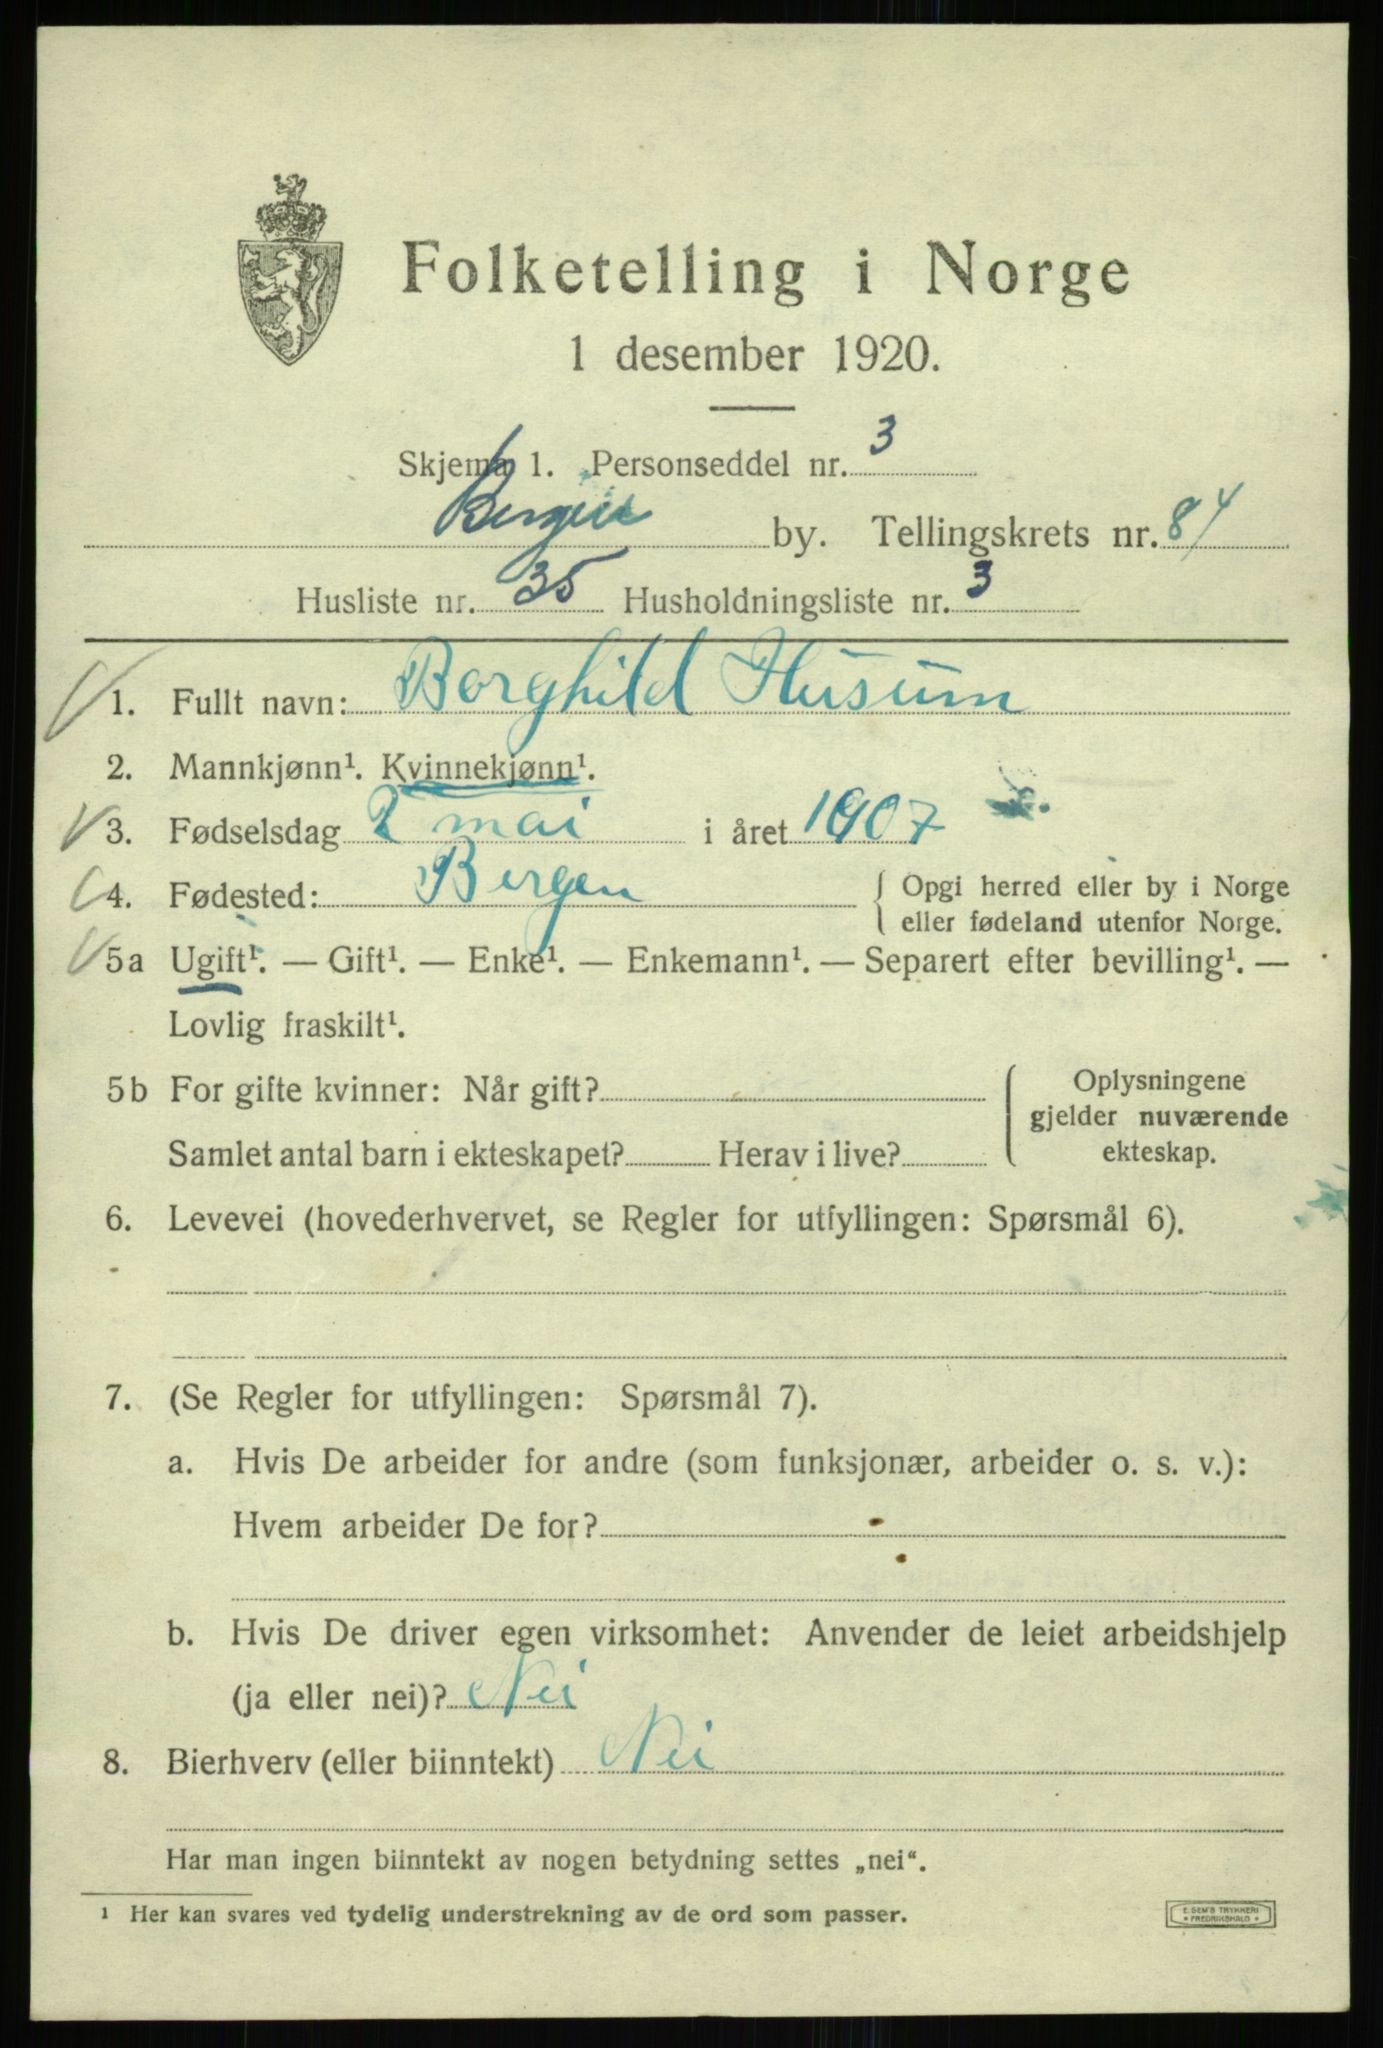 Folketelling i Norge
1 desember 1920.
Skjema 1. Personseddel nr. 3
Bergen by. Tellingskrets nr. 84
Husliste nr. 35 Husholdningsliste nr. 3
1. Fullt navn: Borghild Husum
2. Mannkjønn¹. Kvinnekjønn¹.
3. Fødselsdag 2 mai i året 1907
4. Fødested: Bergen { Opgi herred eller by i Norge
eller fødeland utenfor Norge.
5a Ugift¹. — Gift¹. — Enke¹. — Enkemann¹. — Separert efter bevilling¹. —
Lovlig fraskilt¹.
5b For gifte kvinner: Når gift? Oplysningene
gjelder nuværende
Samlet antal barn i ekteskapet? Herav i live? ekteskap.
6. Levevei (hovederhvervet, se Regler for utfyllingen: Spørsmål 6).
7. (Se Regler for utfyllingen: Spørsmål 7).
a. Hvis De arbeider for andre (som funksjonær, arbeider o. s. v.):
Hvem arbeider De for?
b. Hvis De driver egen virksomhet: Anvender de leiet arbeidshjelp
(ja eller nei)? Nei
8. Bierhverv (eller biinntekt) Nei
Har man ingen biinntekt av nogen betydning settes „nei“.
¹ Her kan svares ved tydelig understrekning av de ord som passer.
E. SEM'S TRYKKERI
FREDRIKSHALD